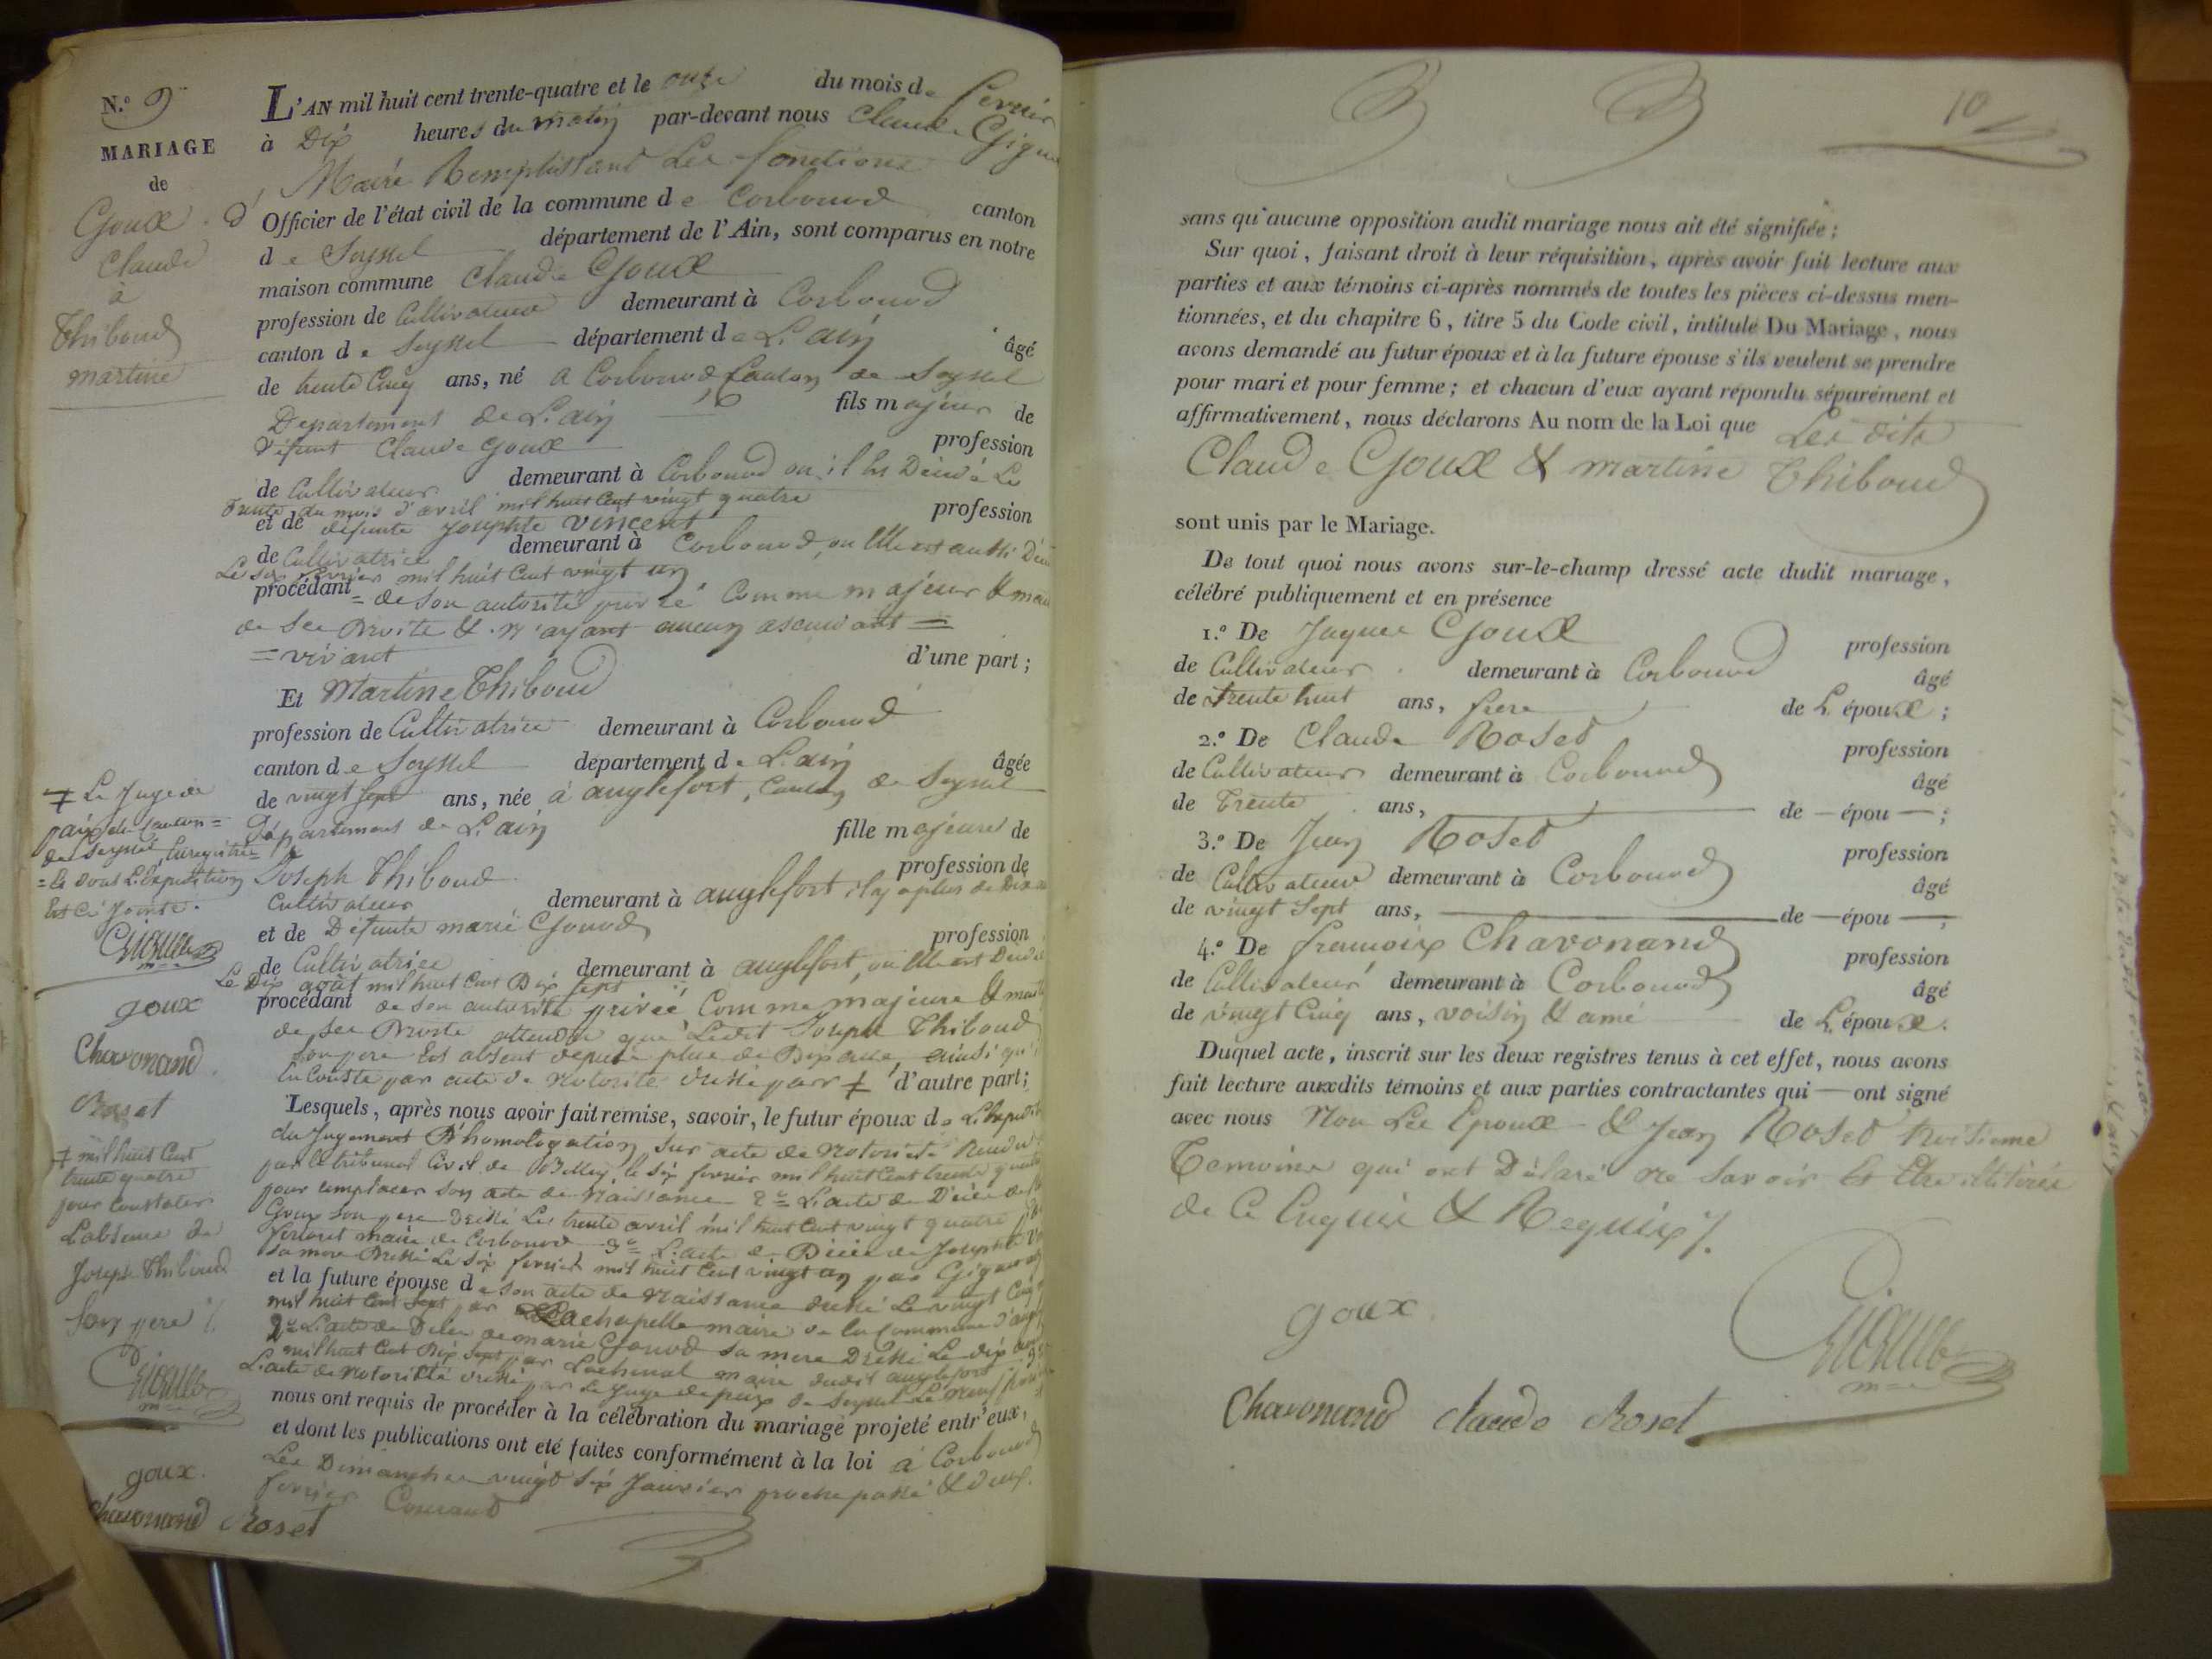 N.º 9
MARIAGE
de
Goux
Claude
à
Thiboud
martine
L'AN mil huit cent trente-quatre et le onze du mois de fevrier
à Dix heures du matin par-devant nous Claude
Maire Remplissant Les fonctions d'
Officier de l'état civil de la commune de Corbonod canton
de Seyssel département de l'Ain, sont comparus en notre
maison commune Claude Goux
profession de Cultivateur demeurant à Corbonod
canton de Seyssel département de L'ain âgé
de trente Cinq ans, né a Corbonod Canton de Seyssel
Departement de L'ain fils majeur de
défunt Claude Goux profession
de Cultivateur demeurant à Corbonod ou il Est Décédé Le
Trente du mois d'avril mil huit Cent vingt quatre
et de défunte Josephte vincent profession
de Cultivatrice demeurant à Corbonod, ou Elle est aussi
Le six fevrier mil huit Cent vingt un
procédant de son autorité privée Comme majeur &
de Ses Droits & n'ayant aucun ascendant =
= vivant d'une part ;
Et Martine Thiboud
profession de Cultivatrice demeurant à Corbonod
canton de Seyssel département de L'ain âgée
de vingt Sept ans, née à anglefort, Canton de Seyssel
Département de L'ain fille majeure de
Joseph Thiboud profession de
Cultivateur demeurant à anglefort il y a plus de Dix
et de Défunte marie Gonod profession
de Cultivatrice demeurant à anglefort, ou Elle est Décédée
Le Dix août mil huit Cent Dix Sept
procédant de son autorité privée Comme majeure &
de Ses Droits attendu que Ledit Joseph Thiboud
Son pere Est absent depuis plus de Dix ans, ainsi qu'il
En Conste par acte de notorité dressé par ≠ d'autre part ;
≠ Le Juge de
paix du Canton =
de Seyssel, Enregistré
= Et dont L'Expedition
Est Ci Jointe.
goux
Chavonand
Roset
Lesquels, après nous avoir fait remise, savoir, le futur époux de L'Expedition
du Jugement D'homologation sur acte de notoriété Rendu
par le tribunal Civil de Belley, le six fevrier mil huit Cent trente quatre
pour remplacer Son acte de naissance 2.º L'acte de Décès de
Goux Son pere Dressé Le trente avril mil huit Cent vingt quatre
maire de Corbonod 3.º L'acte de Décès de Josephte
sa mere Dressé Le six fevrier mil huit Cent vingt un par
et la future épouse de son acte de naissance dressé Le vingt Cinq
mil huit Cent Sept par Lachapelle maire de la Commune
2.º L'acte de Décès de marie Gonod sa mere Dressé Le dix
mil huit Cent Dix Sept par maire dudit anglefort
L'acte de notoriété dressé par Le Juge de paix de Seyssel Le
≠ mil huit Cent
trente quatre
pour Constater
L'absence de
Joseph Thiboud
Son pere
nous ont requis de procéder à la célébration du mariage projeté entr'eux,
et dont les publications ont été faites conformément à la loi à Corbonod
Les Dimanches vingt Six Janvier proche passé & deux
fevrier Courant
goux.
Chavonand Roset
10
sans qu'aucune opposition audit mariage nous ait été signifiée ;
Sur quoi, faisant droit à leur réquisition, après avoir fait lecture aux
parties et aux témoins ci-après nommés de toutes les pièces ci-dessus men-
tionnées, et du chapitre 6, titre 5 du Code civil, intitulé Du Mariage, nous
avons demandé au futur époux et à la future épouse s'ils veulent se prendre
pour mari et pour femme ; et chacun d'eux ayant répondu séparément et
affirmativement, nous déclarons Au nom de la Loi que Les dits
Claude Goux & martine Thiboud
sont unis par le Mariage.
De tout quoi nous avons sur-le-champ dressé acte dudit mariage,
célébré publiquement et en présence
1.º De Jaques Goux profession
de Cultivateur demeurant à Corbonod âgé
de trente huit ans, frere de L'époux ;
2.º De Claude Roset profession
de Cultivateur demeurant à Corbonod âgé
de Trente ans, — de — épou — ;
3.º De Jean Roset profession
de Cultivateur demeurant à Corbonod âgé
de vingt Sept ans, — de — épou — ;
4.º De francoix Chavonand profession
de Cultivateur demeurant à Corbonod âgé
de vingt Cinq ans, voisin & ami de L'époux.
Duquel acte, inscrit sur les deux registres tenus à cet effet, nous avons
fait lecture auxdits témoins et aux parties contractantes qui — ont signé
avec nous Non Les Epoux & Jean Roset troisieme
Temoins qui ont Déclaré ne Savoir Et Etre illitérés
de Ce Enquis & Requis %.
goux.
Chavonand Claude Roset